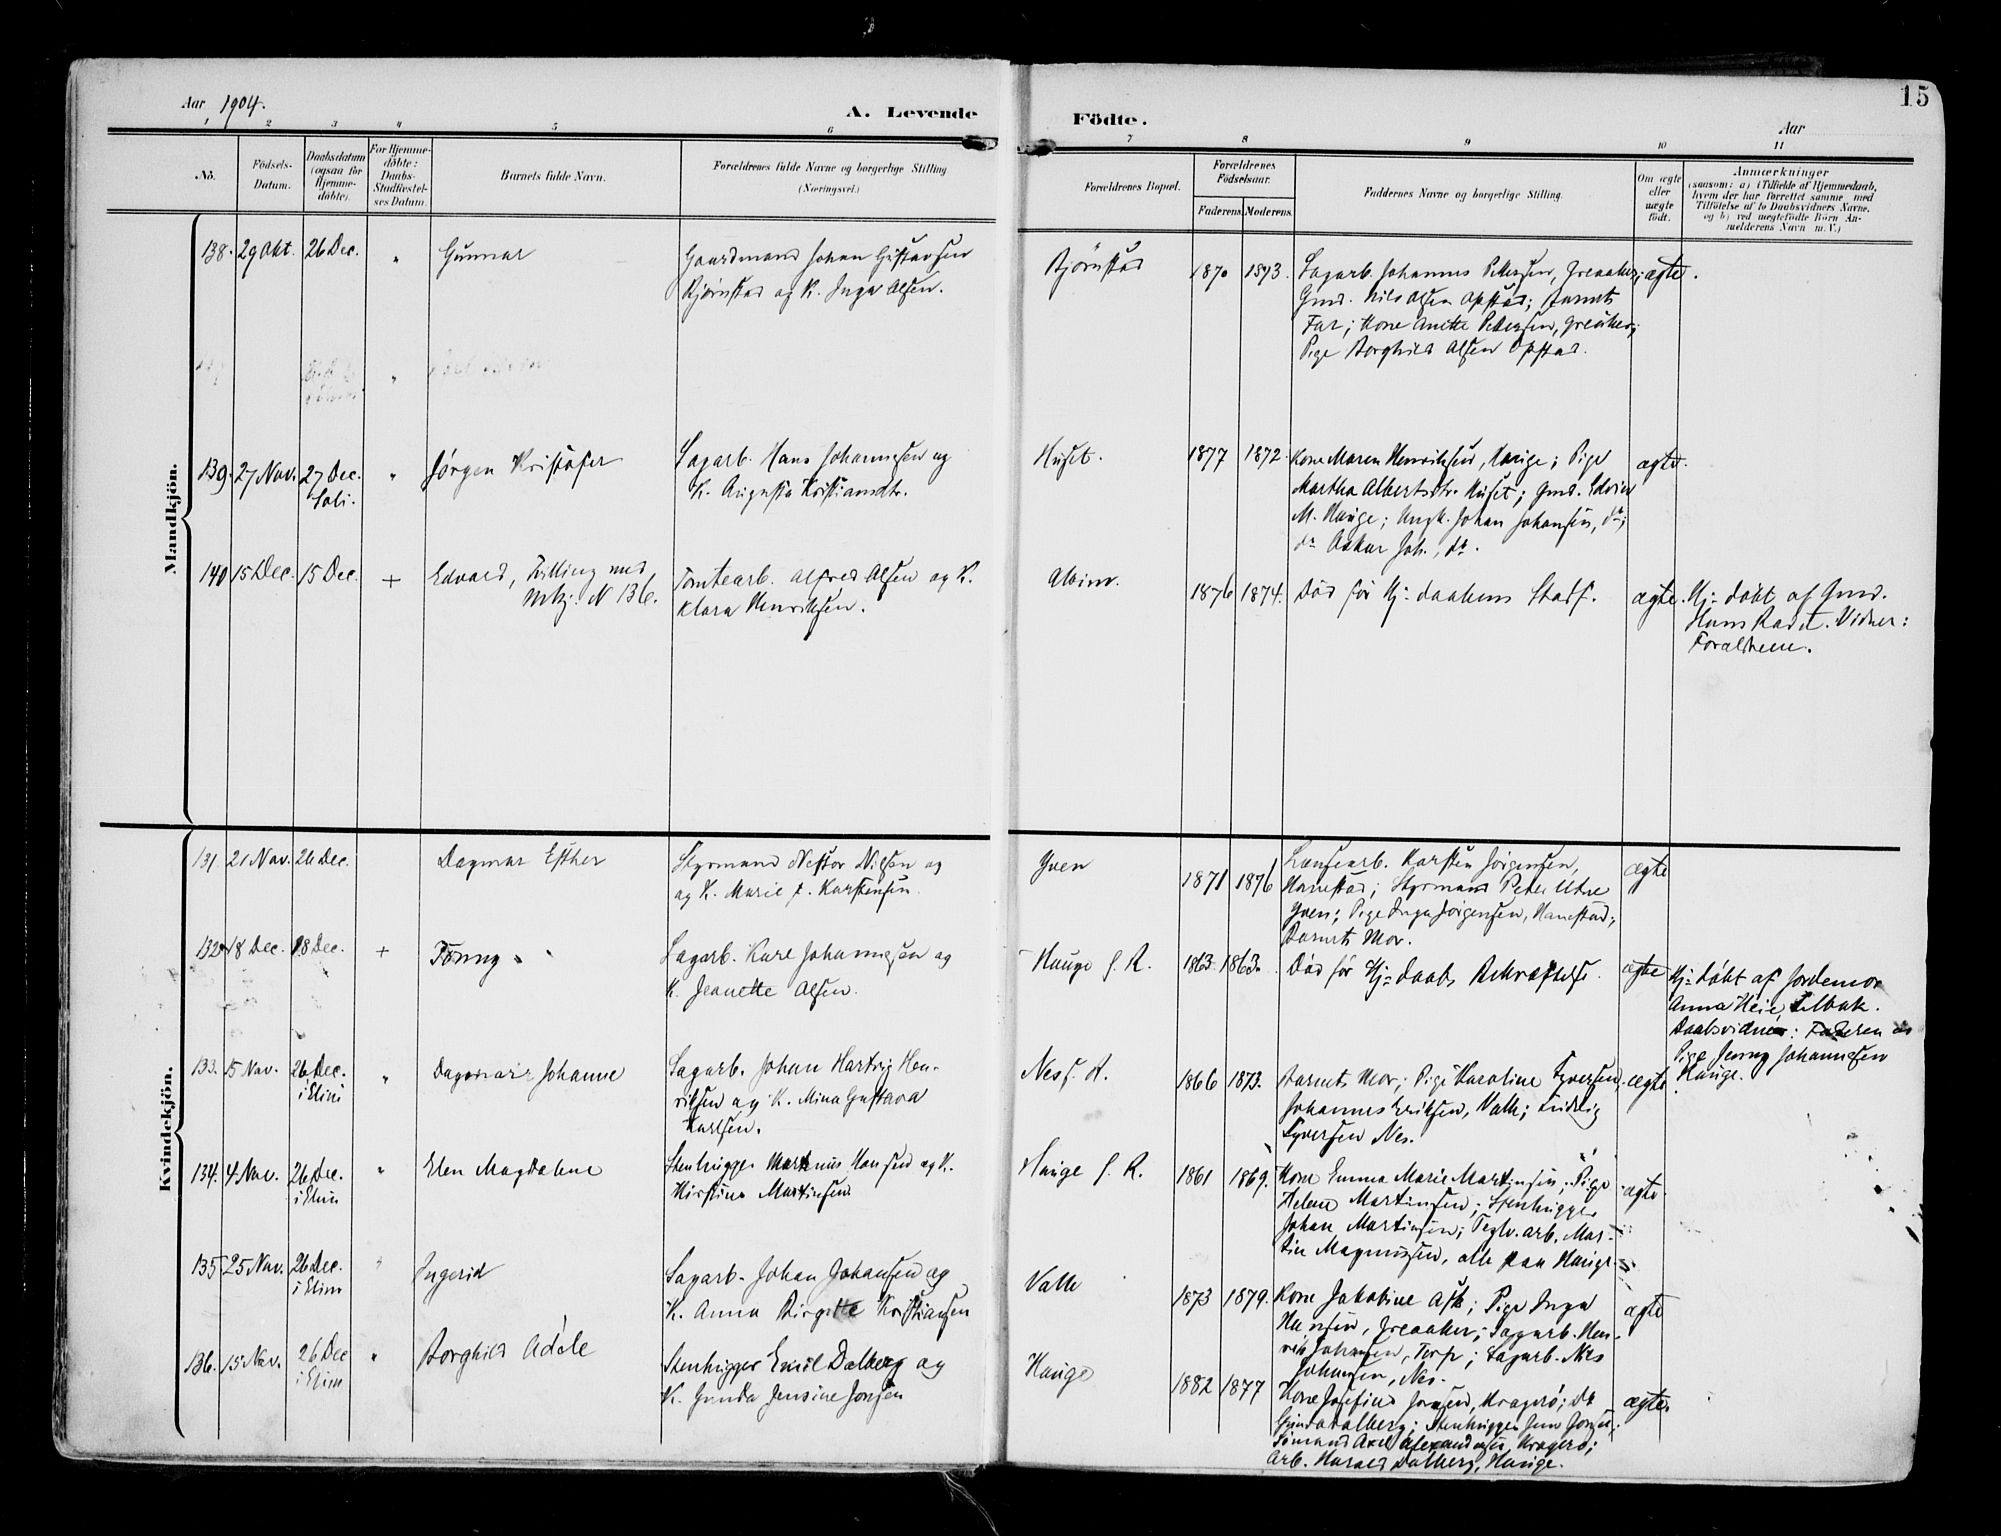 15
Aar 1904.
A. Levende Födte.
Aar
1 2 3 4 5 6 7 8 9 10 11
No.
Födsels-Datum.
Daabsdatum (ogsaa for Hjemme-döbte).
For Hjemme-döbte: Daabs-Stadfæstel-ses Datum.
Barnets fulde Navn.
Forældrenes fulde Navne og borgerlige Stilling (Næringsvei.)
Forældrenes Bopæl.
Forældrenes Födselsaar.
Faderens. Moderens.
Faddernes Navne og borgerlige Stilling.
Om ægte eller uægte födt.
Anmærkninger
(saasom: a) i Tilfælde af Hjemmedaab,
hvem der har forrettet samme, med
Tilföielse af to Daabsvidners Navne,
og b) ved uægtefödte Börn An-
melderens Navn m. V.)
Mandkjön.
138. 29 Okt. 26 Dec. " Gunnar
Gaardmand Johan Gustavsen
Bjørnstad og K. Inga Olsen.
Bjørnstad 1870 1873.
Sagarb. Johannes Pettersen, Greaaker;
Gmd. Nils Olsen Opstad; Barnets
Far; Kone Anette Pettersen, Greåker;
Pige Borghild Olsen Opstad.
ægte.
139. 27 Nov. 27 Dec. " Jørgen Kristofer
Soli.
Sagarb. Hans Johannesen og
K. Augusta Kristiansdtr.
Huset. 1877 1872.
Kone Maren Henriksen, Hauge; Pige
Martha Albertsdtr. Huset; Gmd. Edvin
M. Hauge; Ungk. Johan Johansen, do;
do Oskar Joh., do.
ægte.
140 15 Dec. 15 Dec. + Edvard, Tvilling med
N 136.
Tomtearb. Alfred Olsen og K.
Klara Henriksen.
1876 1874.
Død før Hj=daabens Stadf.
ægte.
Hj=døbt af Gmd.
Hans . Vidner:
Forældrene.
Kvindekjön.
131 21 Nov. 26 Dec. Dagmar Esther
Styrmand Nestor Nilsen og
og K. Marie f. Karstensen.
Yven 1871 1876
Karsten Jørgensen,
Hanestad; Styrmand Peter Utne
Yven; Pige Inga Jørgensen, Hanestad;
Barnets Mor.
ægte
132 18 Dec. 18 Dec. + Fanny
Sagarb. Karl Johannesen og
K. Jeanette Olsen.
Hauge f. R. 1863 1863.
Død før Hj=daabs Bekræftelse.
ægte
Hj=døbt af Jordemor
Anna Heie, Selbak.
Daabsvidner: Faderen og
Pige Jenny Johannesen
Hauge.
133. 5 Nov. 26 Dec. " Dagmar Johanne
i Elim
Sagarb. Johan Hartvig Hen-
riksen og K. Mina Gustava
Karlsen.
Nes f. R. 1866 1873.
Barnets Mor; Pige Karoline Syversen,
Johannes Eriksen, Valle; Fredrig
Syversen Nes.
ægte
134. 4 Nov. 26 Dec. " Elen Magdalene
i Elim
Stenhugger Martinus Hansen og K.
Kirstine Martinsen.
Hauge f. R. 1861 1869.
Kone Emma Marie Martinsen; Pige
Helene Martinsen; Stenhugger
Johan Martinsen; Teglv. arb. Mar-
tin Magnussen, alle paa Hauge.
ægte
135 25 Nov. 26 Dec. " Ingerid
i Elim
Sagarb. Johan Johansen og
K. Anna Birgitte Kristiansen
Valle 1873 1879.
Kone Jakobine Ask; Pige Inga
Hansen, Greaaker; Sagarb. Hen-
rik Johansen, Torp; Sagarb. Nils
Johansen, Nes.
ægte
136. 15 Nov. 26 Dec " Borghild Adele
i Elim
Stenhugger Emil Dalberg og
K. Gunda Jensine Jonsen
Hauge 1882 1877
Kone Josefine Jonsen, Kragerø; Do
Gunda Dalberg; Stenhugger Jens Jonsen;
Sømand Axel Alexandersen, Kragerø;
Arb. Harald Dalberg, Hauge.
ægte.